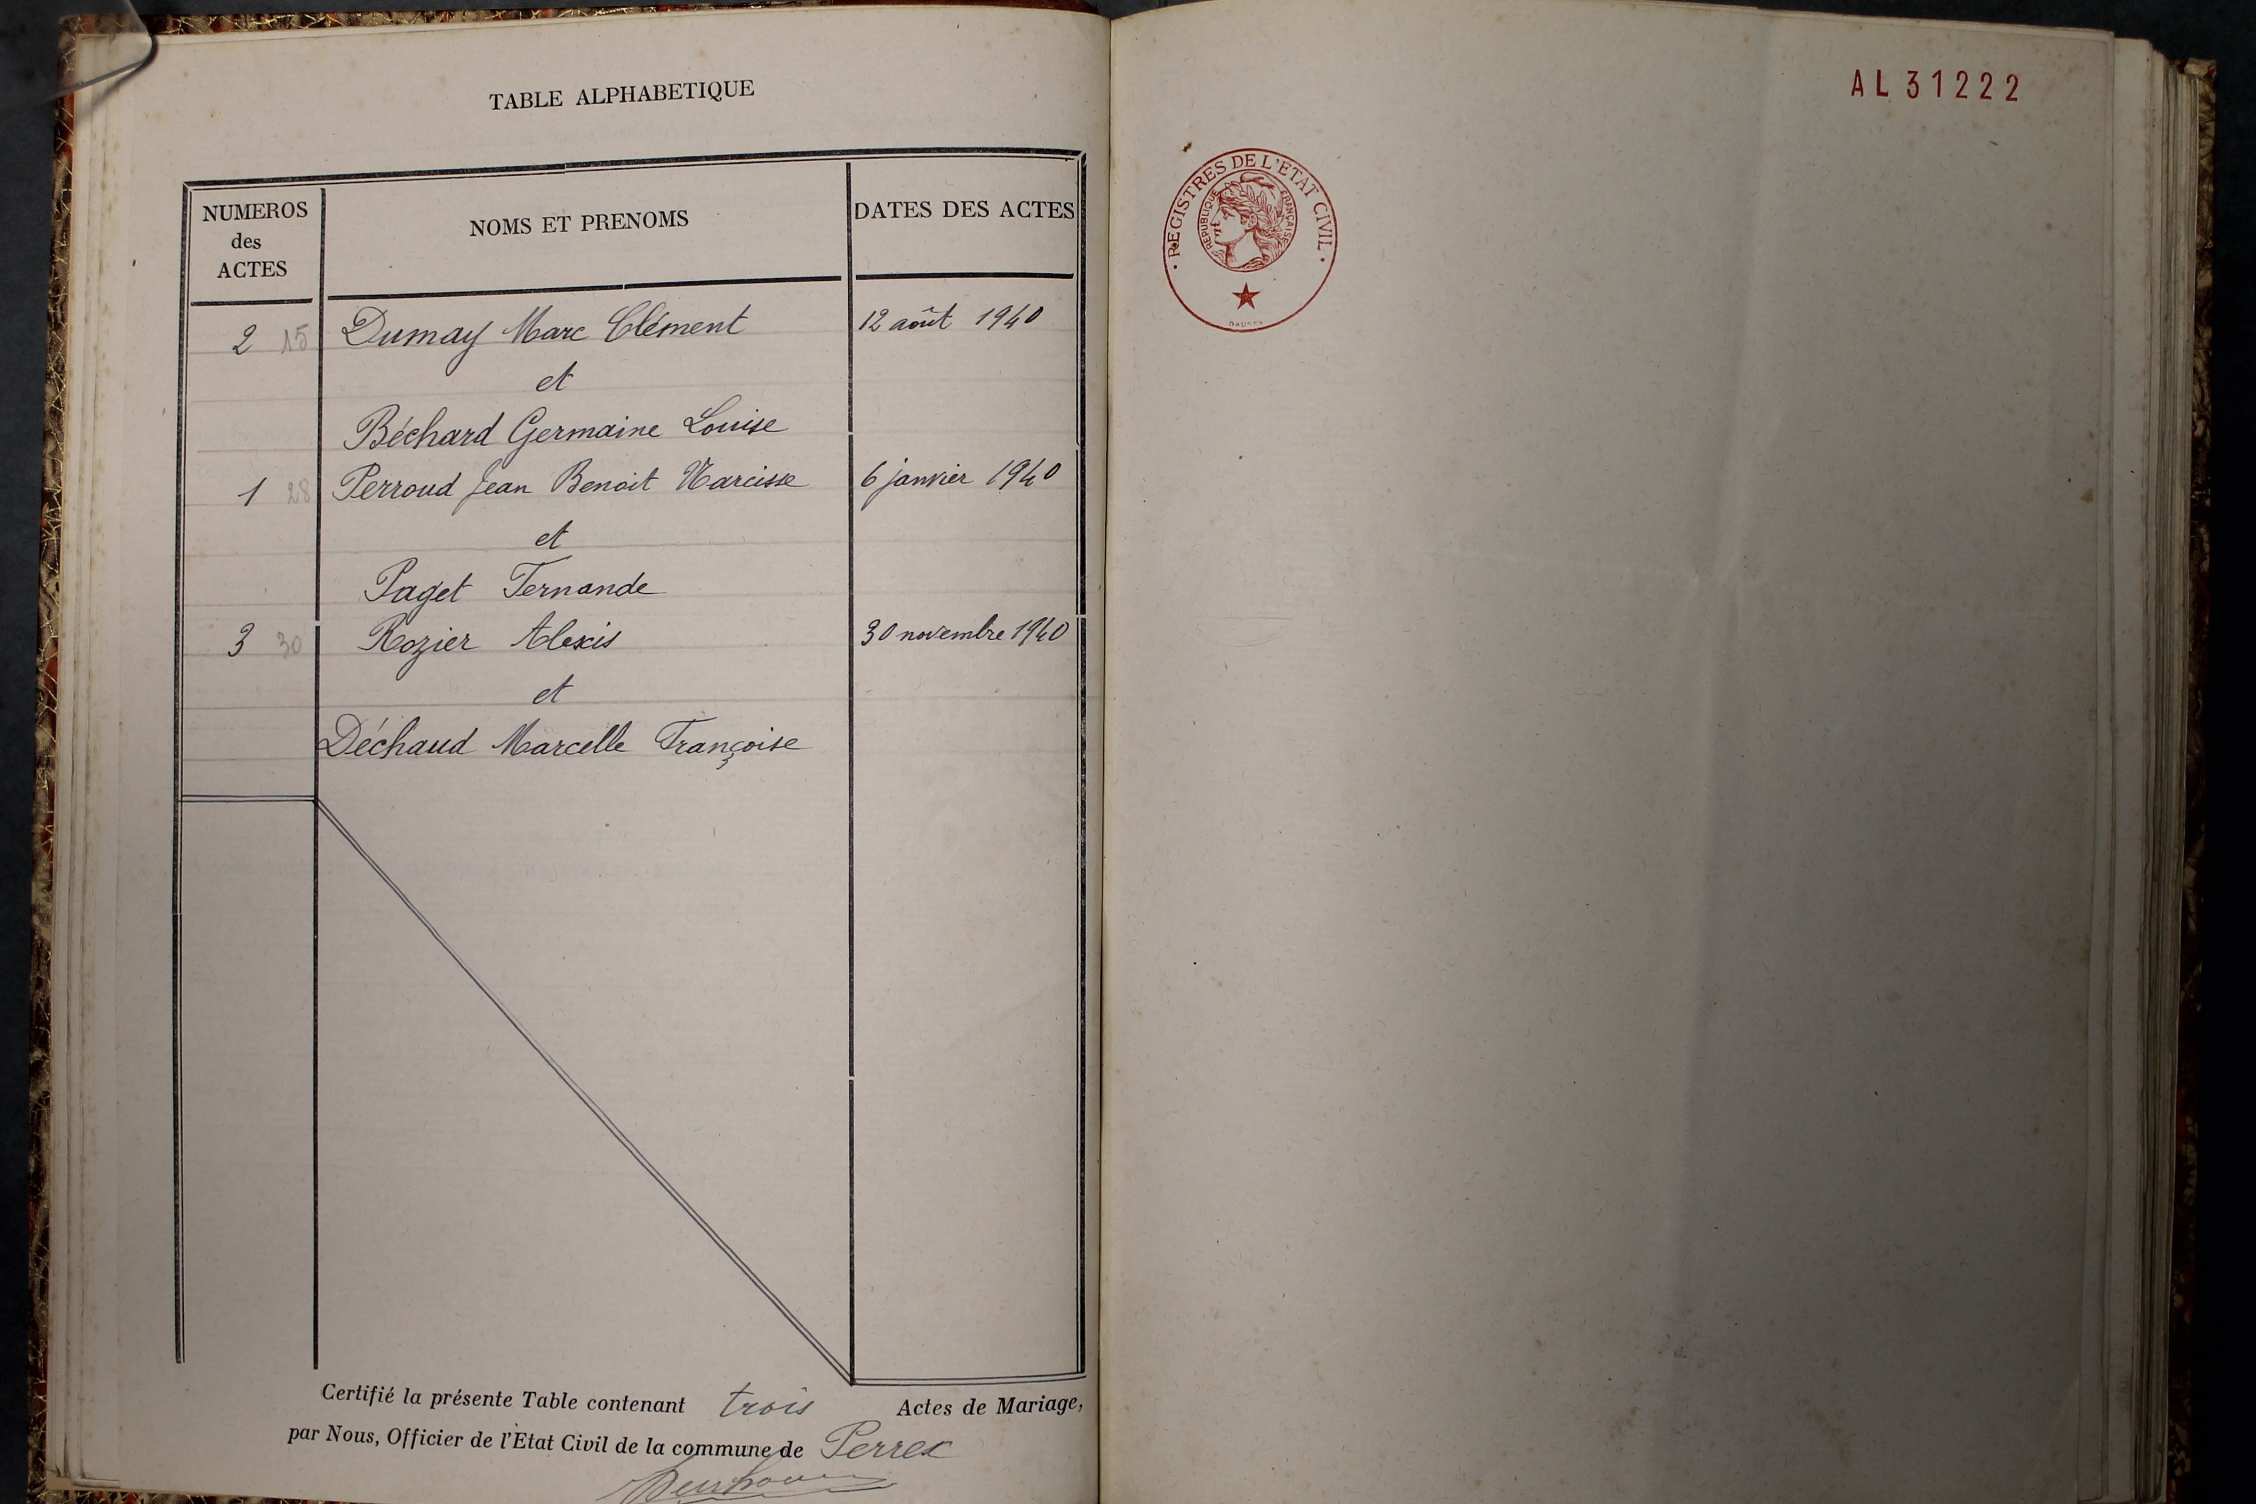 TABLE ALPHABETIQUE
NUMEROS
des
ACTES
NOMS ET PRENOMS
DATES DES ACTES
2 15 Dumay Marc Clément 12 août 1940
et
Béchard Germaine Louise
1 28 Perroud Jean Benoit Narcisse 6 janvier 1940
et
Paget Fernande
3 30 Rozier Alexis 30 novembre 1940
et
Déchaud Marcelle Françoise
Certifié la présente Table contenant trois Actes de Mariage,
par Nous, Officier de l'Etat Civil de la commune de Perrex
AL 31222
· REGISTRES DE L'ETAT CIVIL ·
REPUBLIQUE FRANÇAISE